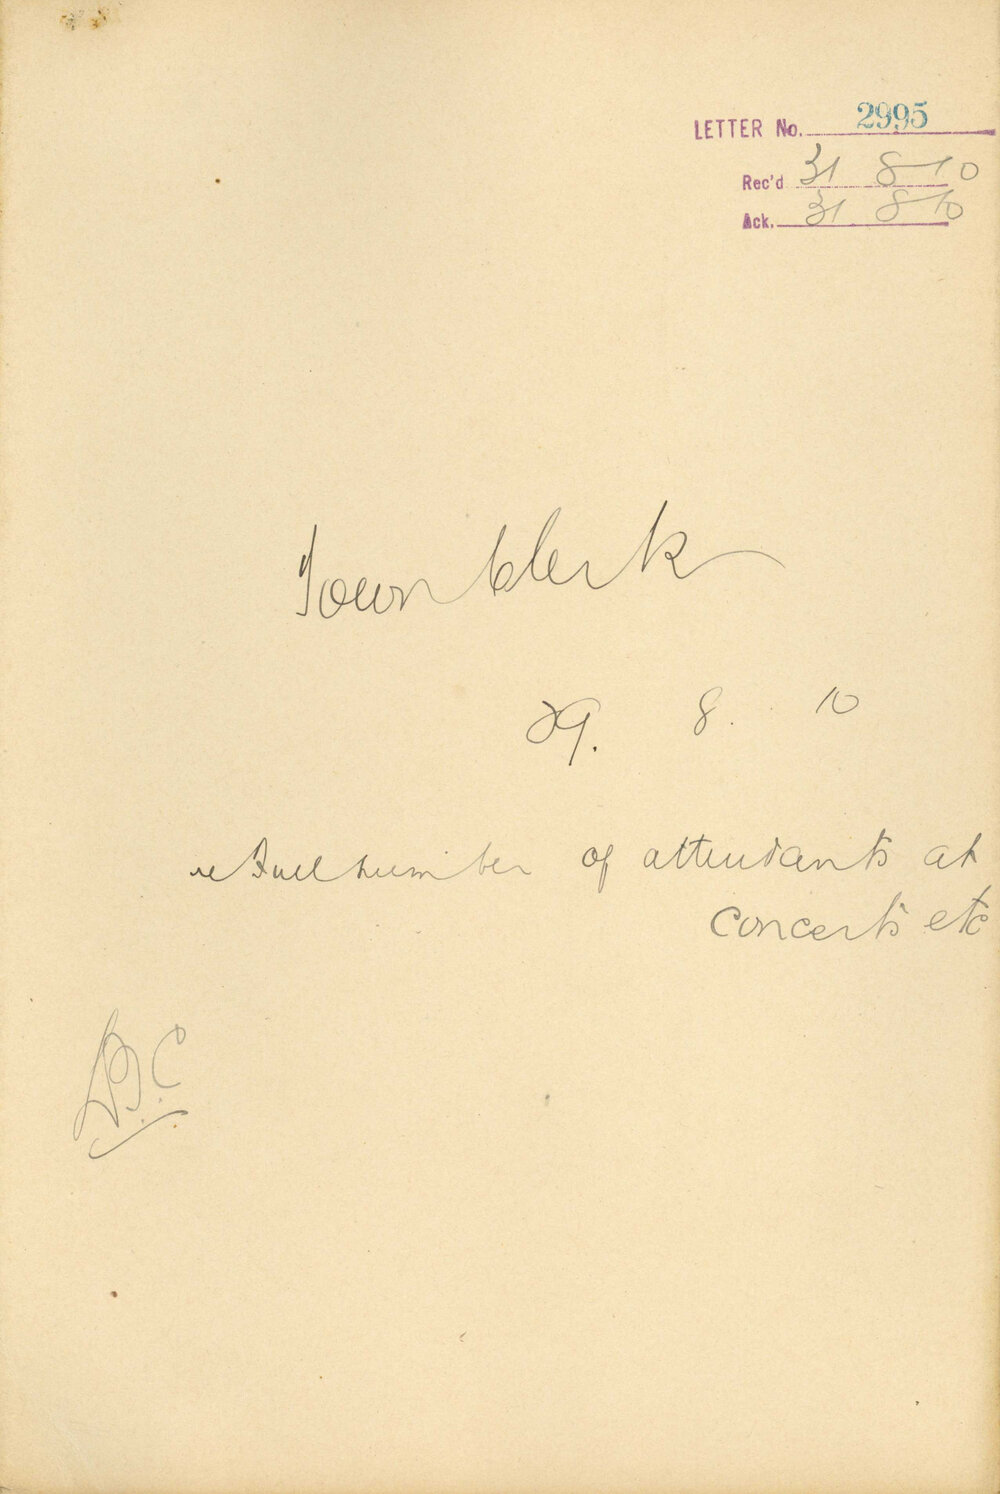 LETTER No. 2995
Rec'd 31 8 10
Ack. 31 8 10
Town Clerk
29. 8. 10
re Full number of attendants at
concerts etc